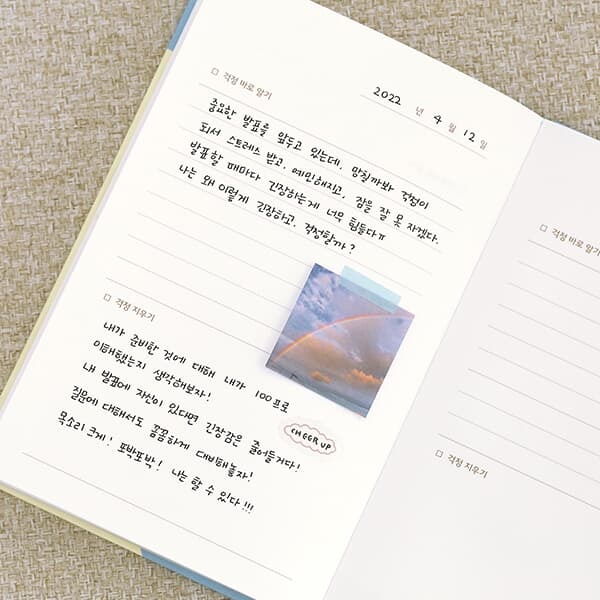 2022 년 4 월 12 일
□ 걱정 바로 알기
중요한 발표를 앞두고 있는데, 망칠까봐 걱정이
되서 스트레스 받고, 예민해지고, 잠을 잘 못 자겠다.
발표할 때마다 긴장하는게 너무 힘들다ㅠ
나는 왜 이렇게 긴장하고, 걱정할까?
□ 걱정 지우기
내가 준비한 것에 대해 내가 100프로
이해했는지 생각해보자!
내 발표에 자신이 있다면 긴장감은 줄어들거다!
질문에 대해서도 꼼꼼하게 대비해놓자!
목소리 크게! 또박또박! 나는 할 수 있다!!!
CHEER UP
□ 걱정 바로 알기
□ 걱정 지우기